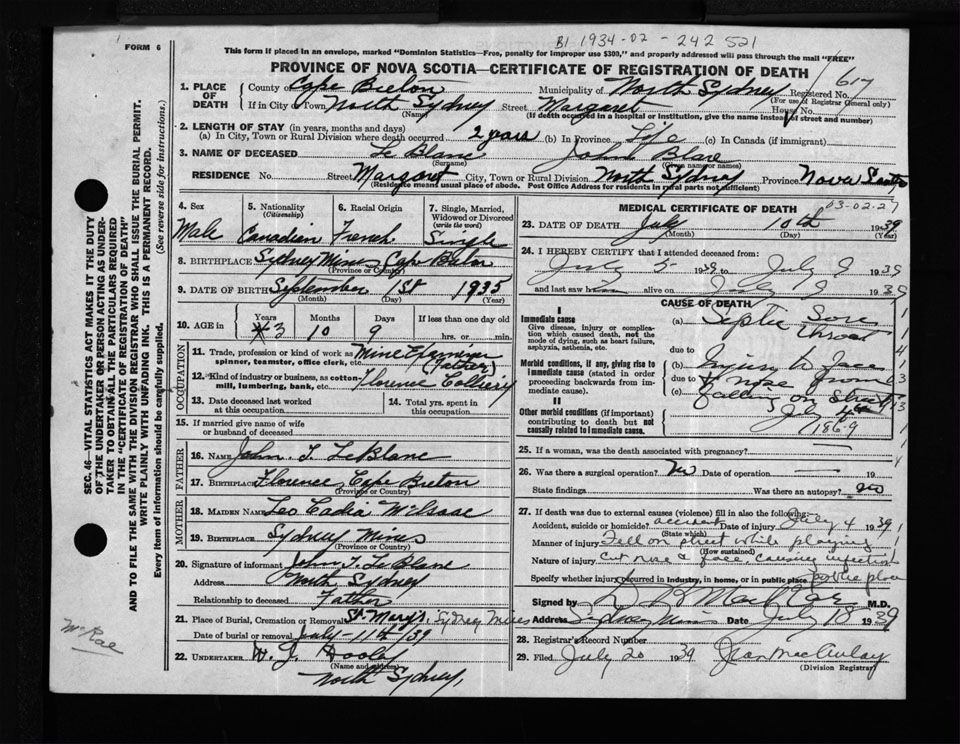 FORM 6
B1 1934-02-242 521
This form if placed in an envelope, marked "Dominion Statistics—Free, penalty for improper use $300," and properly addressed will pass through the mail "FREE"
PROVINCE OF NOVA SCOTIA—CERTIFICATE OF REGISTRATION OF DEATH
617
1. PLACE OF DEATH County of Cape Breton Municipality of North Sydney Registered No.
(For use of Registrar General only)
If in City or Town North Sydney Street Margaret House No.
(Name) (If death occurred in a hospital or institution, give the name instead of street and number)
2. LENGTH OF STAY (in years, months and days)
(a) In City, Town or Rural Division where death occurred 2 years (b) In Province Life (c) In Canada (if immigrant)
3. NAME OF DECEASED Le Blanc John
(Surname) (Given name or names)
RESIDENCE No. Street Margaret City, Town or Rural Division North Sydney Province Nova Scotia
(Residence means usual place of abode. Post Office Address for residents in rural parts not sufficient)
4. Sex Male
5. Nationality (Citizenship) Canadian
6. Racial Origin French
7. Single, Married, Widowed or Divorced (write the word) Single
8. BIRTHPLACE Sydney Mines Cape Breton
(Province or County)
9. DATE OF BIRTH September 1st 1935
(Month) (Day) (Year)
10. AGE in Years Months Days If less than one day
3 10 9 hrs. or min.
OCCUPATION
11. Trade, profession or kind of work as spinner, teamster, office clerk, etc. Mine Examiner (Father)
12. Kind of industry or business, as cotton-mill, lumbering, bank, etc. Florence Colliery
13. Date deceased last worked at this occupation
14. Total yrs. spent in this occupation
15. If married give name of wife or husband of deceased
FATHER
16. NAME John T. LeBlanc
17. BIRTHPLACE Florence Cape Breton
(Province or Country)
MOTHER
18. MAIDEN NAME Leo Cadia McIsaac
19. BIRTHPLACE Sydney Mines
(Province or Country)
20. Signature of informant John T. LeBlanc
Address North Sydney
Relationship to deceased Father
21. Place of Burial, Cremation or Removal St Mary's, Sydney Mines
Date of burial or removal July 11th/39
22. UNDERTAKER W. J. Dooley
(Name and address)
North Sydney,
MEDICAL CERTIFICATE OF DEATH 03-02-27
23. DATE OF DEATH July 10th 1939
(Month) (Day) (Year)
24. I HEREBY CERTIFY that I attended deceased from:
July 5 1939 to July 9 1939
and last saw h alive on July 9 1939
CAUSE OF DEATH
I
Immediate cause (a) Septic Sore throat
Give disease, injury or complication which caused death, not the mode of dying, such as heart failure, asphyxia, asthenia, etc.
due to
Morbid conditions, if any, giving rise to immediate cause (stated in order proceeding backwards from immediate cause).
(b) Injury to face
due to & nose from
(c) falling on street
July 4th
II
Other morbid conditions (if important) contributing to death but not causally related to immediate cause.
186-9
25. If a woman, was the death associated with pregnancy?
26. Was there a surgical operation? No Date of operation 19
State findings Was there an autopsy? no
27. If death was due to external causes (violence) fill in also the following:
Accident, suicide or homicide? accident Date of injury July 4 1939
(State which)
Manner of injury Fell on street while playing
(How sustained)
Nature of injury Cut nose & face, causing infection
Specify whether injury occurred in industry, in home, or in public place public place
Signed by M.D.
Address Sydney Mines Date July 18 1939
28. Registrar's Record Number
29. Filed July 20 1939 Jean MacAulay
(Division Registrar)
SEC. 46—VITAL STATISTICS ACT MAKES IT THE DUTY OF THE UNDERTAKER OR PERSON ACTING AS UNDERTAKER TO OBTAIN ALL THE PARTICULARS REQUIRED IN THE "CERTIFICATE OF REGISTRATION OF DEATH"
AND TO FILE THE SAME WITH THE DIVISION REGISTRAR WHO SHALL ISSUE THE BURIAL PERMIT.
WRITE PLAINLY WITH UNFADING INK. THIS IS A PERMANENT RECORD.
Every item of information should be carefully supplied. (See reverse side for instructions.)
McRae